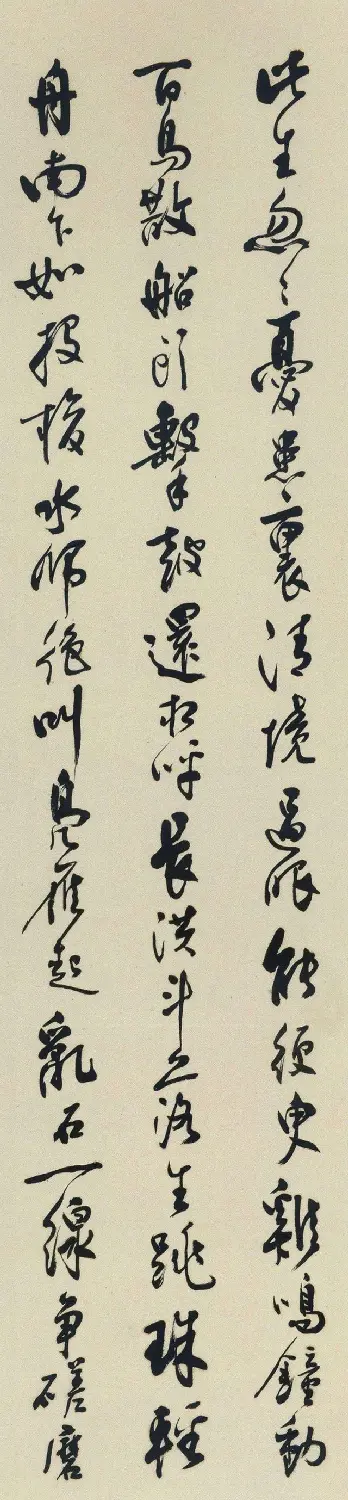 此生忽〻憂患裏清境過眼能須臾雞鳴鐘動
百鳥散船頭擊鼓還相呼長洪斗落生跳珠輕
舟南下如投梭水師絕叫鳧雁起亂石一線爭磋磨